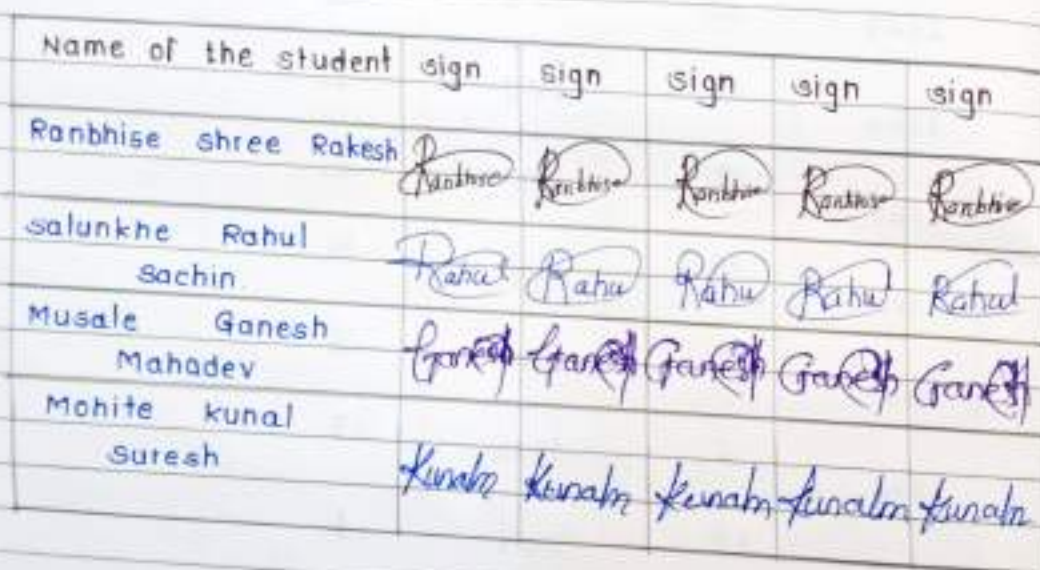 Name of the student sign sign sign sign sign
Ranbhise shree Rakesh Ranbhise Ranbhise Ranbhise Ranbhise Ranbhise
salunkhe Rahul
Sachin Rahul Rahul Rahul Rahul Rahul
Musale Ganesh
Mahadev Ganesh Ganesh Ganesh Ganesh Ganesh
Mohite kunal
Suresh Kunalm Kunalm Kunalm Kunalm Kunalm